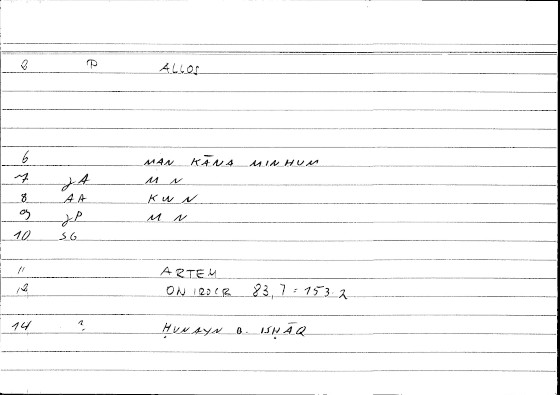 2 P ALLOS
6 MAN KĀNA MINHUM
7 JA M N
8 AA KW N
9 JP M N
10 SG
11 ARTEM
12 ONIROCR 83,7 = 153.2
14 ? ḤUNAYN B. ISḤĀQ